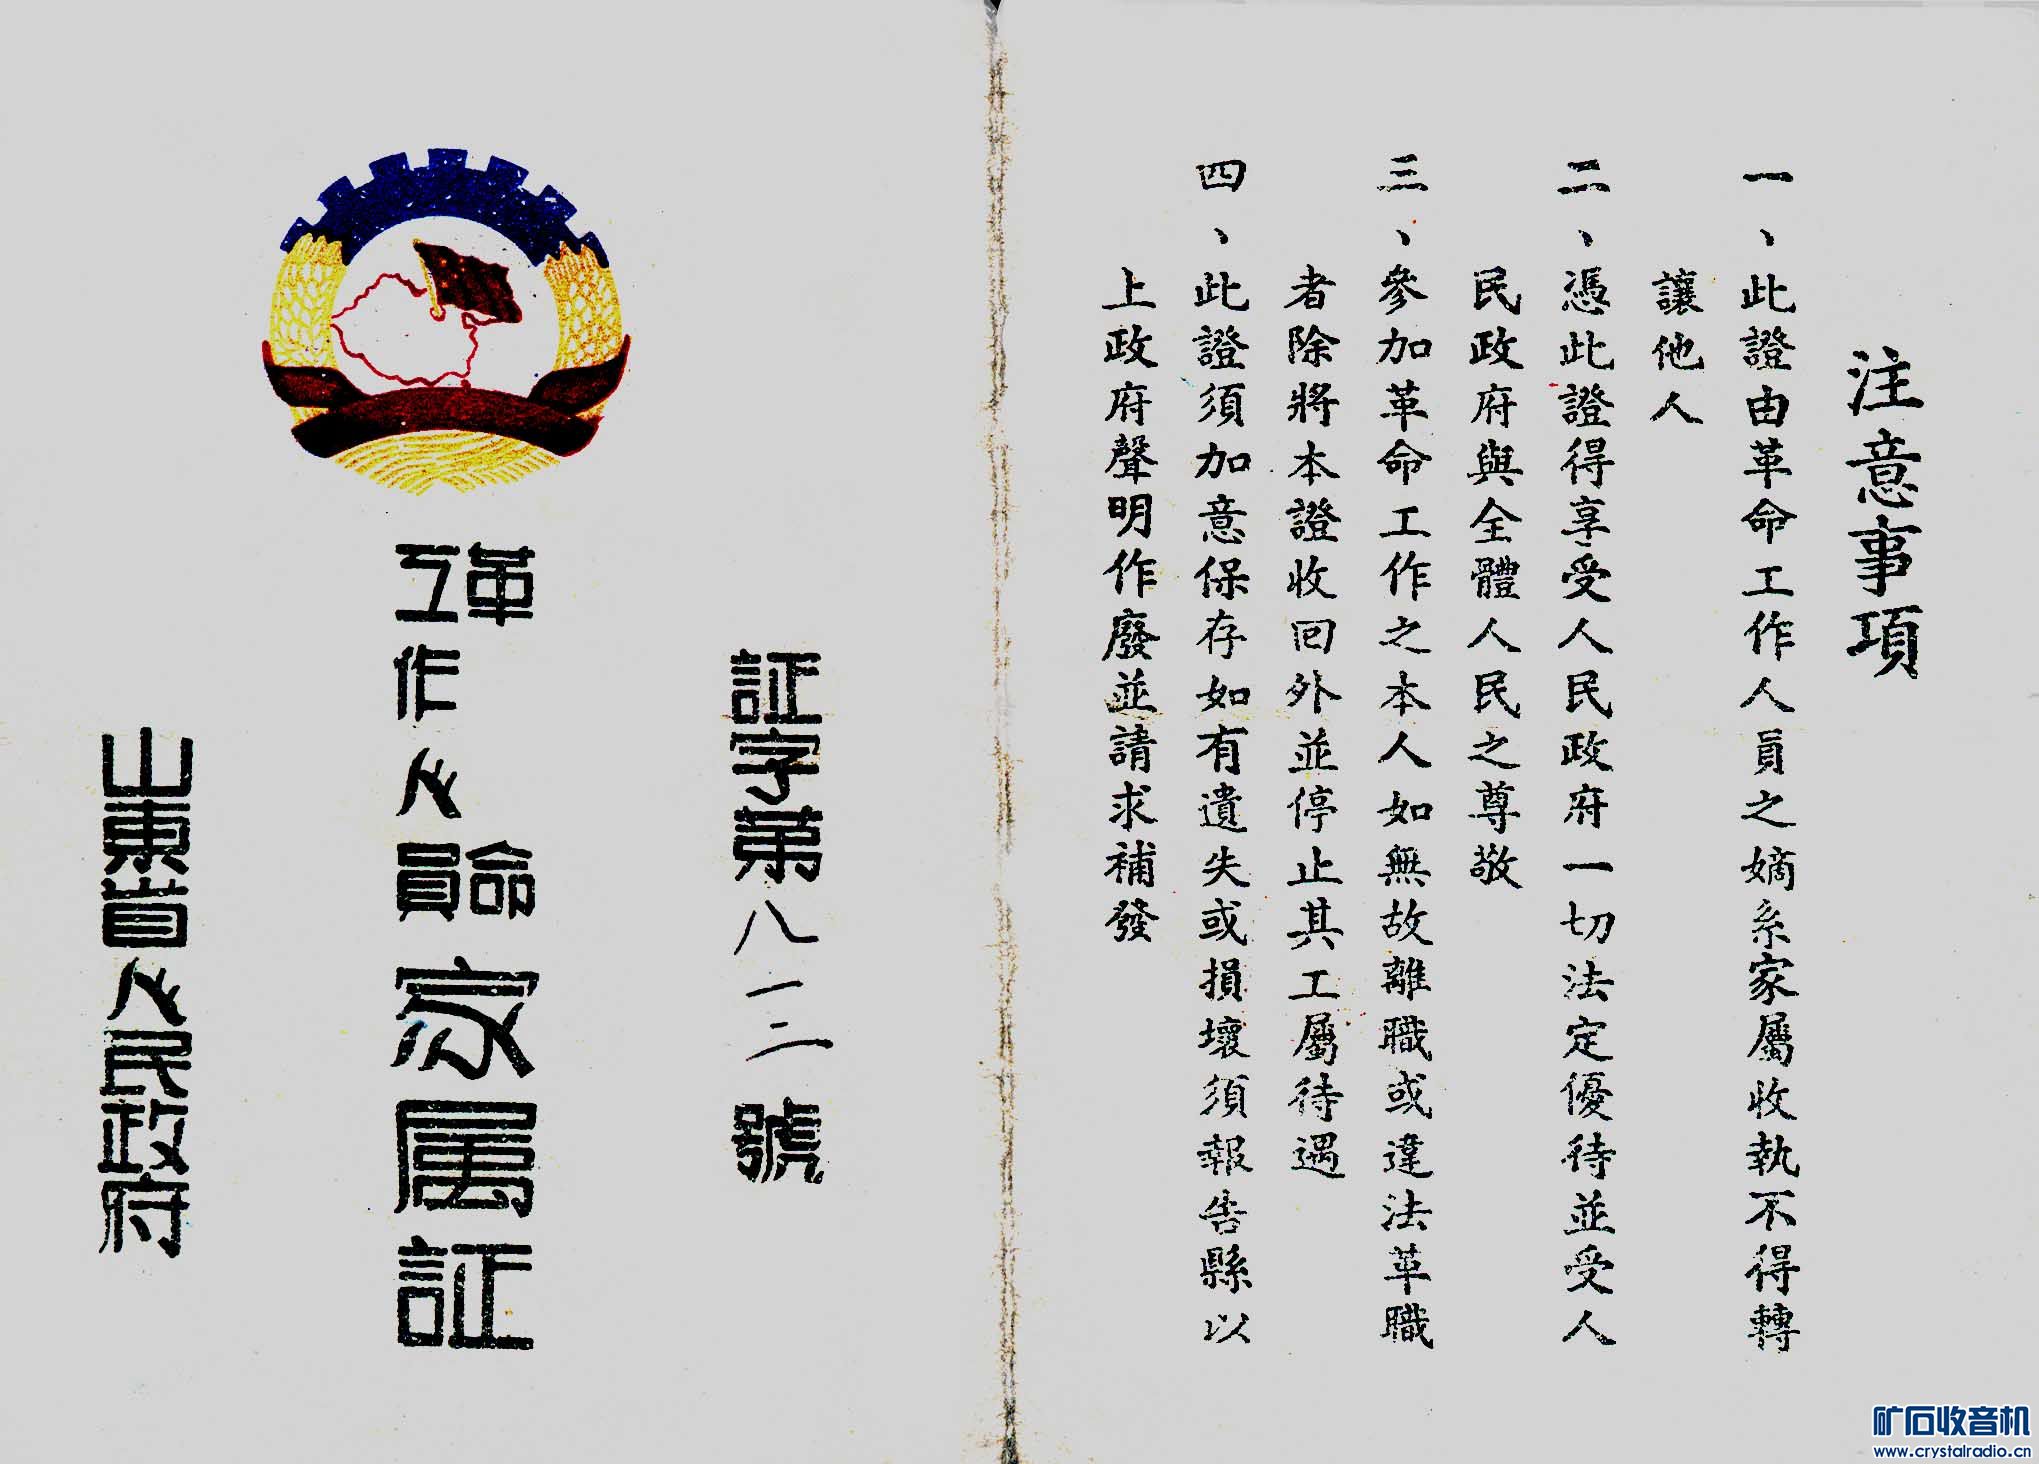 注意事項
一、此證由革命工作人員之嫡系家屬收執不得轉
讓他人
二、憑此證得享受人民政府一切法定優待並受人
民政府與全體人民之尊敬
三、參加革命工作之本人如無故離職或違法革職
者除將本證收回外並停止其工屬待遇
四、此證須加意保存如有遺失或損壞須報告縣以
上政府聲明作廢並請求補發
証字第八一二號
革命
工作人員
家属証
山東省人民政府
矿石收音机
www.crystalradio.cn